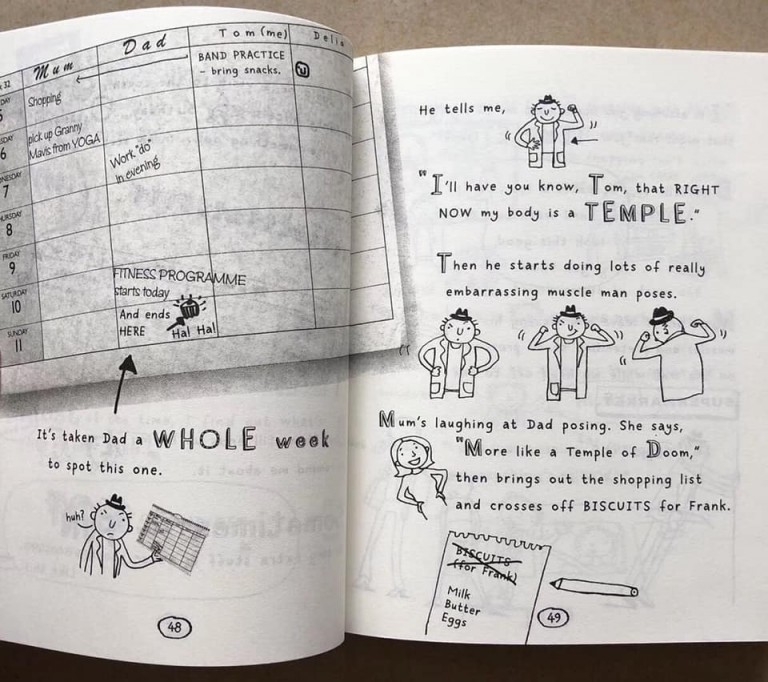 32
Mum
Dad
Tom (me)
Delia
BAND PRACTICE
– bring snacks.
DAY
5
Shopping
6
pick up Granny
Mavis from YOGA
Work "do"
in evening
7
8
FRIDAY
9
FITNESS PROGRAMME
starts today
SATURDAY
10
And ends
HERE
Ha! Ha!
SUNDAY
11
It's taken Dad a WHOLE week
to spot this one.
huh?
48
He tells me,
"I'll have you know, Tom, that RIGHT
NOW my body is a TEMPLE."
Then he starts doing lots of really
embarrassing muscle man poses.
Mum's laughing at Dad posing. She says,
"More like a Temple of Doom,"
then brings out the shopping list
and crosses off BISCUITS for Frank.
BISCUITS
(for Frank)
Milk
Butter
Eggs
49